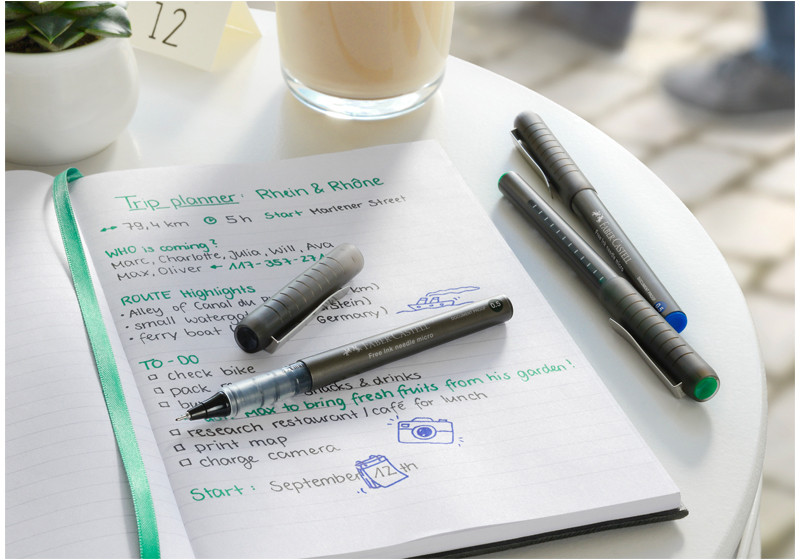 12
Trip planner: Rhein & Rhône
↔ 79,4 km 5h Start Marlener Street
WHO is coming?
Marc, Charlotte, Julia, Will, Ava
Max, Oliver ← 117-357-27
ROUTE Highlights
• Alley of Canal du km)
• small Stein)
• ferry boat Germany)
TO-DO
check bike
pack snacks & drinks
Max to bring fresh fruits from his garden!
research restaurant / café for lunch
print map
charge camera
Start: September 12 th
FABER-CASTELL
Free Ink needle micro
0.5
FABER-CASTELL